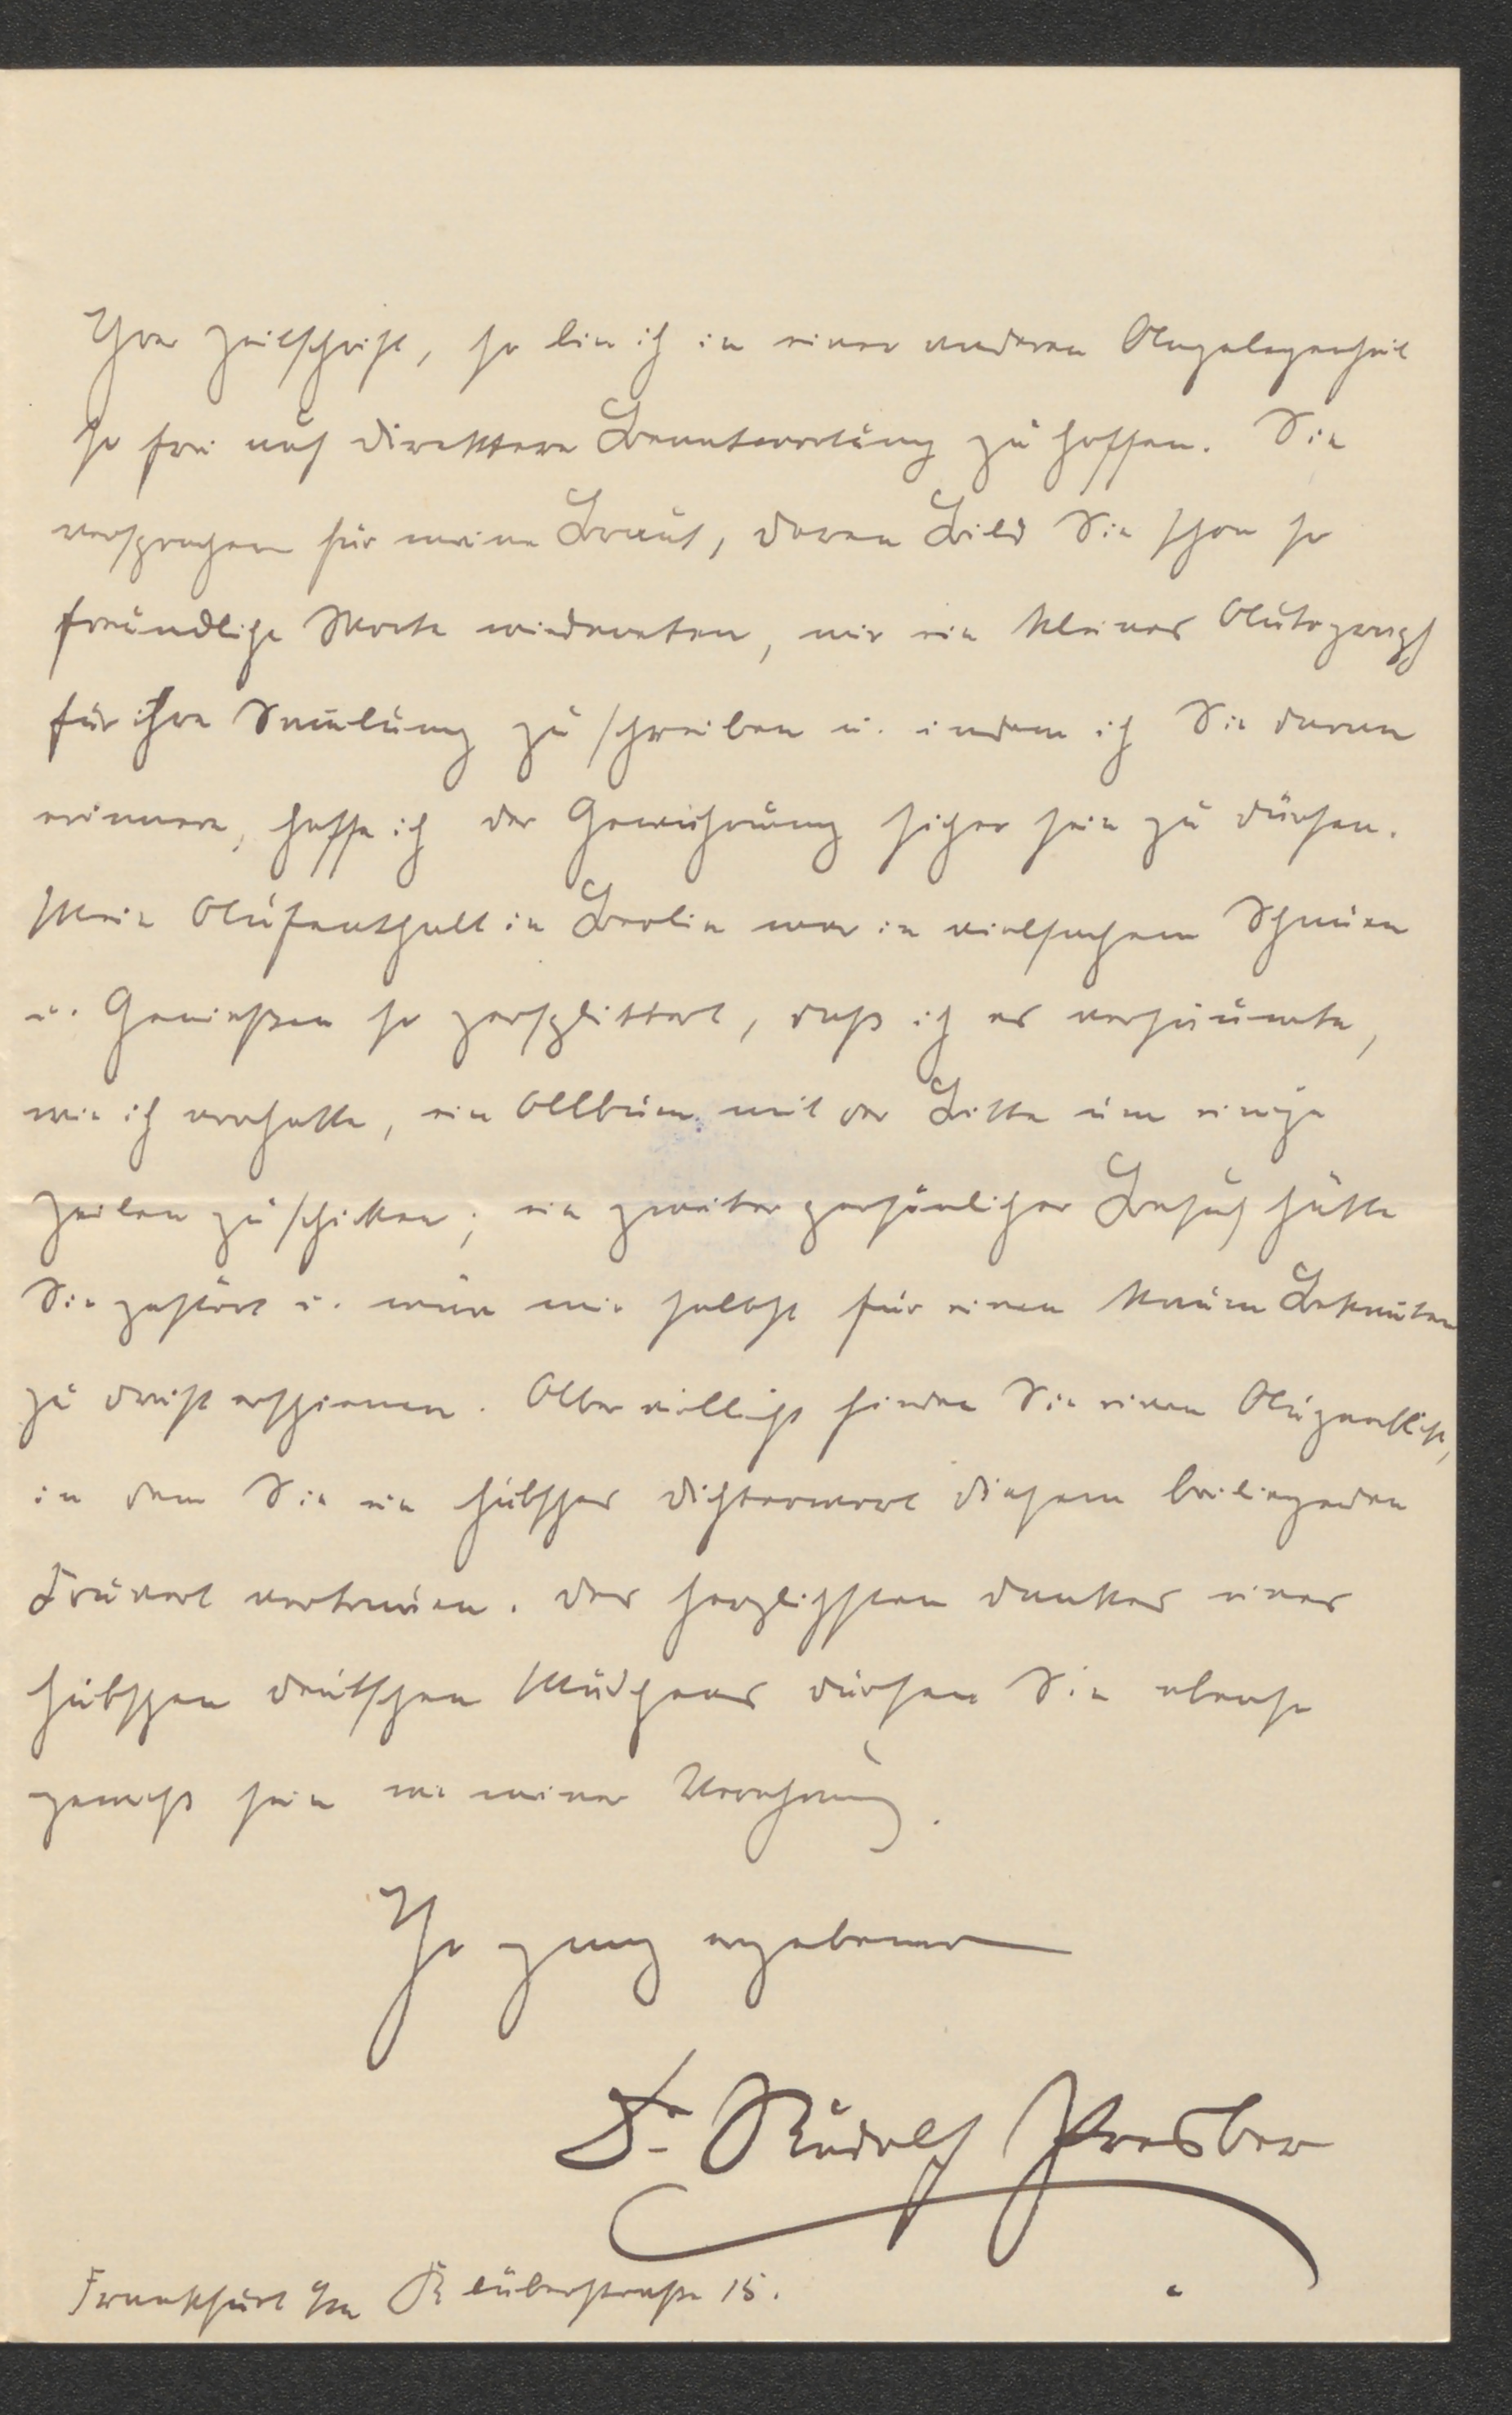 Ihrer Zeitschrift, so bin ich in einer anderen Angelegenheit
so frei auf direktere Beantwortung zu hoffen. Sie
versprachen für meine Braut, deren Bild Sie schon so
freundliche Worte widmeten, mir ein kleines Autograph
für ihre Sam̄lung zu schreiben u. indem ich Sie daran
erinnere, hoffe ich der Gewährung sicher sein zu dürfen.
Mein Aufenthalt in Berlin war in vielfachem Schauen
u. Genießen so zersplittert, daß ich es versäumte,
wie ich vorhatte, ein Album mit der Bitte um einige
Zeilen zu schicken; ein zweiter persönlicher Besuch hätte
Sie gestört u. wäre mir selbst für einen kaum Bekan̄ten
zu dreist erschienen. Aber vielleicht finden Sie einen Augenblick,
in dem Sie ein hübsches Dichterwort diesem beiliegenden
Couvert vertrauen. Des herzlichsten Dankes eines
hübschen deutschen Mädchens dürfen Sie ebenso
gewiß sein wie meiner Verehrung.
Ihr ganz ergebener
Dr. Rudolf Presber
Frankfurt a/m Klüberstraße 15.